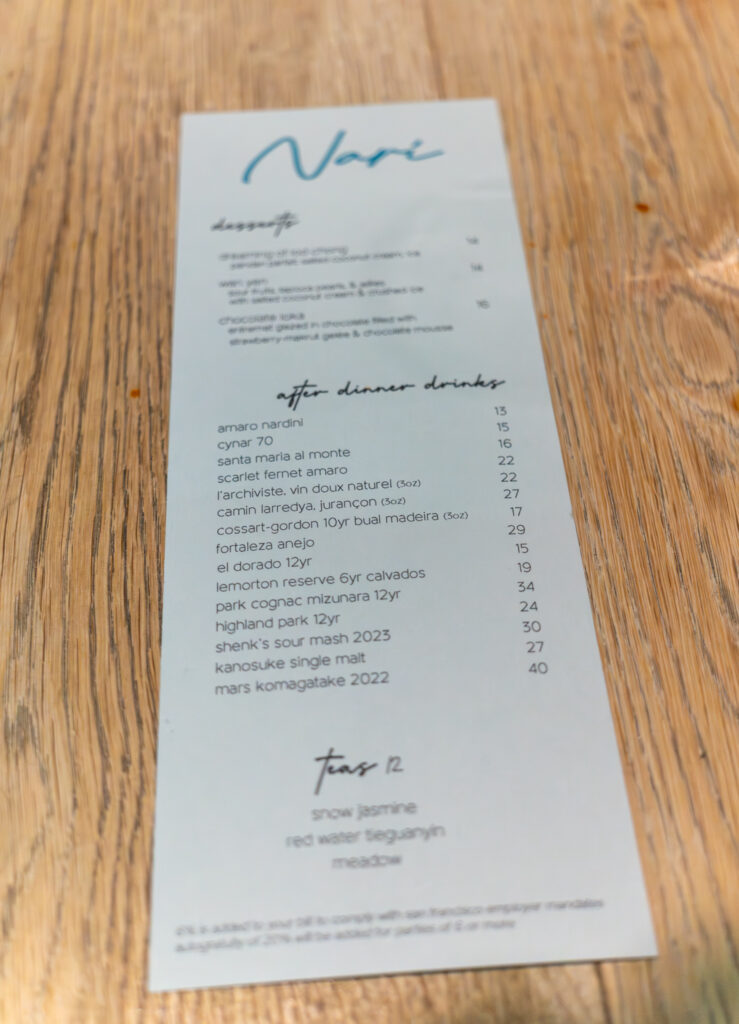 Nari
desserts
dreaming of lod chong
pandan parfait, salted coconut cream, ice
wan yen
sour fruits, tapioca pearls, & jellies
with salted coconut cream & crushed ice
chocolate loka 16
entremet glazed in chocolate filled with
strawberry-makrut gelée & chocolate mousse
after dinner drinks
amaro nardini 13
cynar 70 15
santa maria al monte 16
scarlet fernet amaro 22
l'archiviste, vin doux naturel (3oz) 22
camin larredya, jurançon (3oz) 27
cossart-gordon 10yr bual madeira (3oz) 17
fortaleza anejo 29
el dorado 12yr 15
lemorton reserve 6yr calvados 19
park cognac mizunara 12yr 34
highland park 12yr 24
shenk's sour mash 2023 30
kanosuke single malt 27
mars komagatake 2022 40
teas 12
snow jasmine
red water tieguanyin
meadow
is added to your bill to comply with san francisco employer mandates
autogratuity of 20% will be added for parties of 6 or more